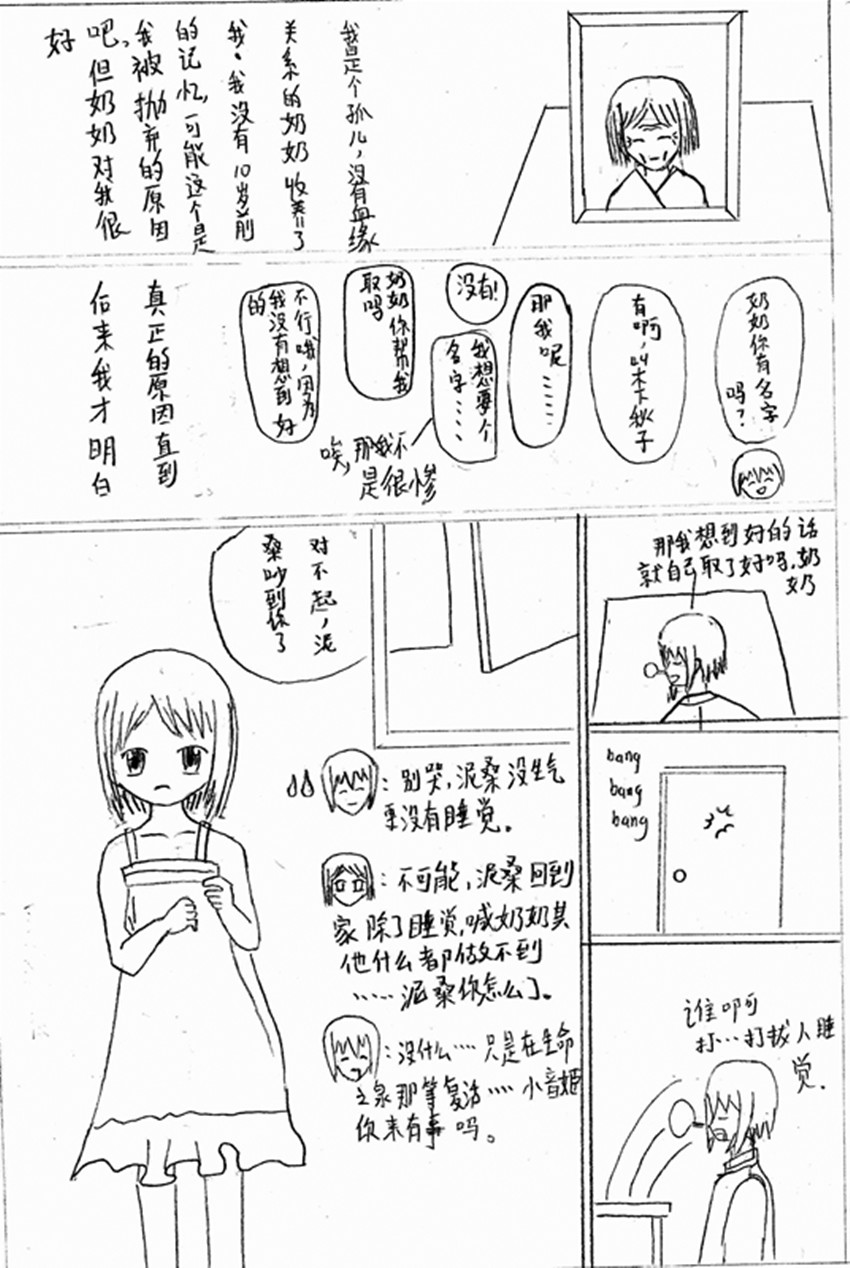 我是个孤儿，没有血缘
关系的奶奶收养了
我。我没有10岁前
的记忆，可能这个是
我被抛弃的原因
吧，但奶奶对我很
好
奶奶你有名字
吗？
有啊，叫木下秋子
那我呢……
没有！
我想要个
名字……
唉，那我不
是很惨
奶奶你帮我
取吗
不行哦，因为
我没有想到好
的
真正的原因直到
后来我才明白
那我想到好的话
就自己取了好吗，奶
奶
bang
bang
bang
谁啊
打…打扰人睡
觉.
对不起，泥
桑吵到你了
：别哭，泥桑没生气
更没有睡觉。
：不可能，泥桑回到
家除了睡觉，喊奶奶其
他什么都做不到
……泥桑你怎么了。
：没什么…只是在生命
之泉那等复活…小音姬
你来有事吗。